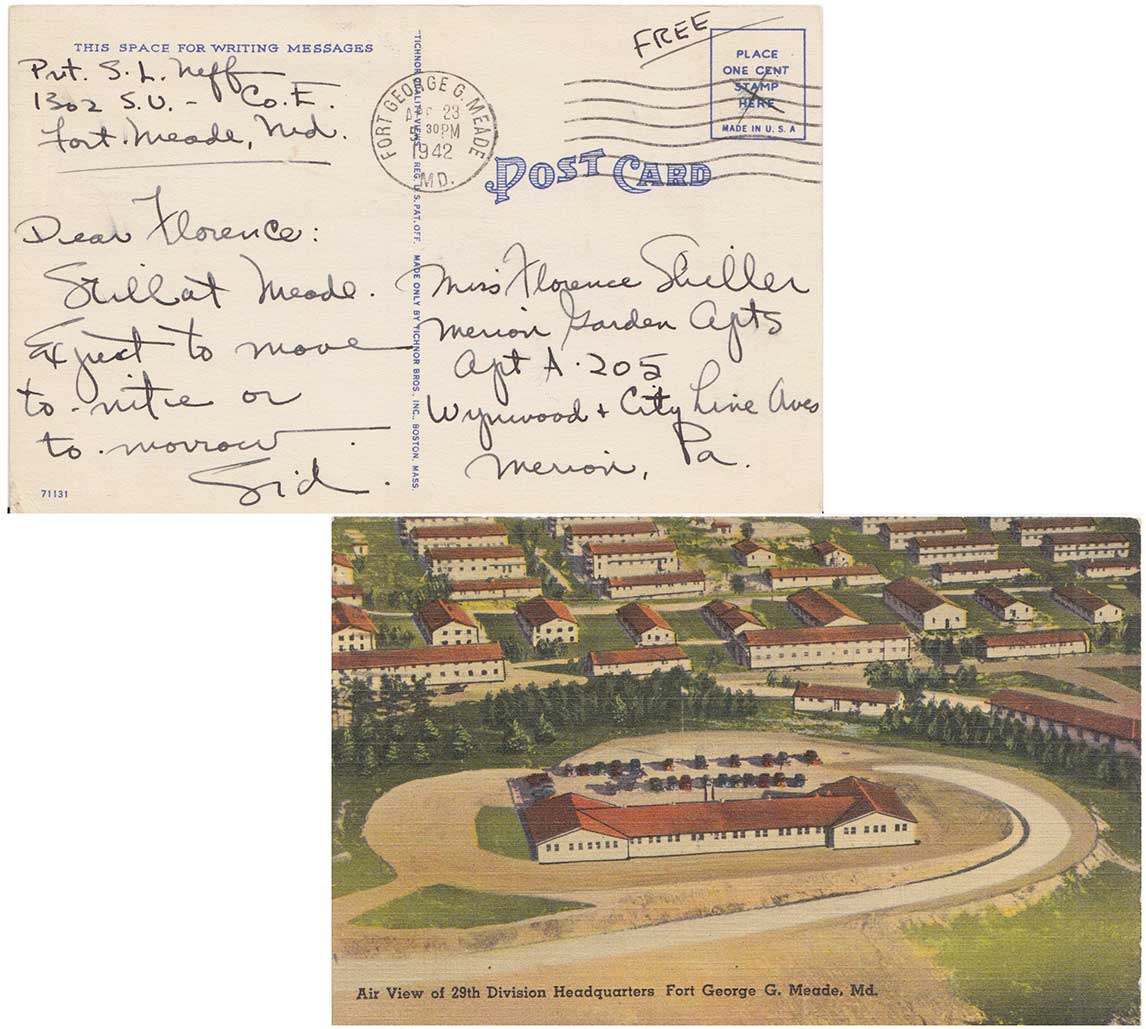 THIS SPACE FOR WRITING MESSAGES
Pvt. S. L. Neff
1302 S.U. - Co. E.
Fort Meade, Md.
Dear Florence:
Still at Meade.
Expect to move
to-nite or
to morrow.
Sid.
71131
TICHNOR QUALITY VIEWS REG. U. S. PAT. OFF. MADE ONLY BY TICHNOR BROS., INC., BOSTON, MASS.
FORT GEORGE G. MEADE
23
30PM
1942
MD.
FREE
PLACE
ONE CENT
STAMP
HERE
MADE IN U. S. A
POST CARD
Miss Florence Shiller
Merion Garden Apts
Apt A-205
Wynwood + City Line Aves
Merion, Pa.
Air View of 29th Division Headquarters Fort George G. Meade, Md.